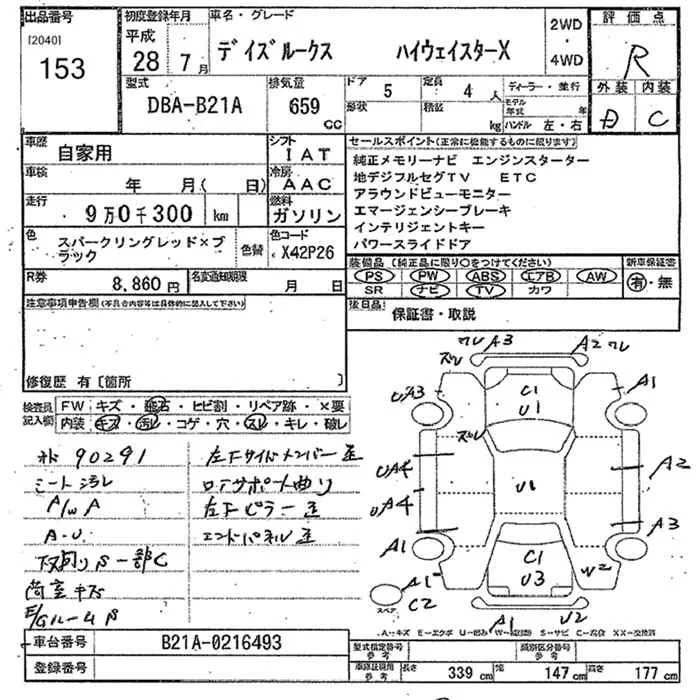 出品番号
[2040]
153
初度登録年月
平成
28 7月
車名・グレード
デイズルークス ハイウェイスターX
2WD
・
4WD
評価点
R
外装 内装
D C
型式
DBA-B21A
排気量
659
CC
ドア 5
定員 4 人
形状
積載
kg
ディーラー・並行
モデル年式 年
ハンドル 左・右
車歴 自家用
シフト IAT
車検 年 月( 日)
冷房 AAC
走行 9万0千300 km
燃料 ガソリン
色 スパークリングレッド×ブラック
色替
色コード X42P26
R券 8,860円
名変通知期限 月 日
セールスポイント(正常に機能するものに限ります)
純正メモリーナビ エンジンスターター
地デジフルセグTV ETC
アラウンドビューモニター
エマージェンシーブレーキ
インテリジェントキー
パワースライドドア
装備品(純正品に限り○をつけてください)
PS PW ABS エアB AW
SR ナビ TV カワ
新車保証書
有・無
後日品
保証書・取説
注意事項申告欄(不具合内容等は具体的に記入して下さい)
修復歴 有〔箇所 〕
検査員記入欄
FW キズ・飛石・ヒビ割・リペア跡・×要
内装 キズ・汚レ・コゲ・穴・スレ・キレ・破レ
90291
シート汚レ
A/W A
A-U
下回りS一部C
荷室キズ
E/GルームS
左Fサイドメンバー歪
ロアサポート曲り
左Fピラー歪
エンドパネル歪
ワレ A3
A2 ワレ
ズレ
UA3
A1
C1
U1
ズレ
UA4
U1
A2
UA4
A3
A1
C1
U3
W2
A1
C2
スペア
A1
U2
A-キズ E-エクボ U-凹み S-サビ C-腐食 XX-交換済
車台番号 B21A-0216493
登録番号
型式指定番号
参考
類別区分番号
参考
車庫証明用
参考
長さ 339 cm
幅 147 cm
高さ 177 cm